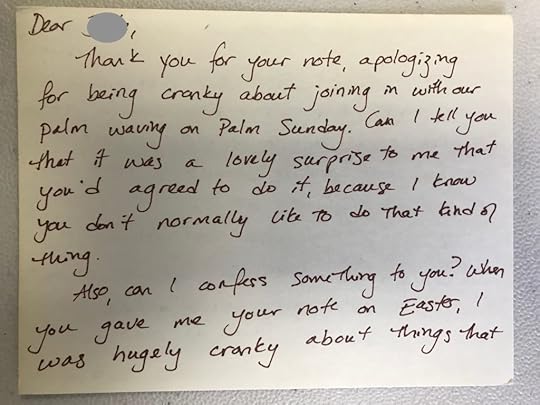 Dear ,
Thank you for your note, apologizing
for being cranky about joining in with our
palm waving on Palm Sunday. Can I tell you
that it was a lovely surprise to me that
you'd agreed to do it, because I know
you don't normally like to do that kind of
thing.
Also, can I confess something to you? When
you gave me your note on Easter, I
was hugely cranky about things that